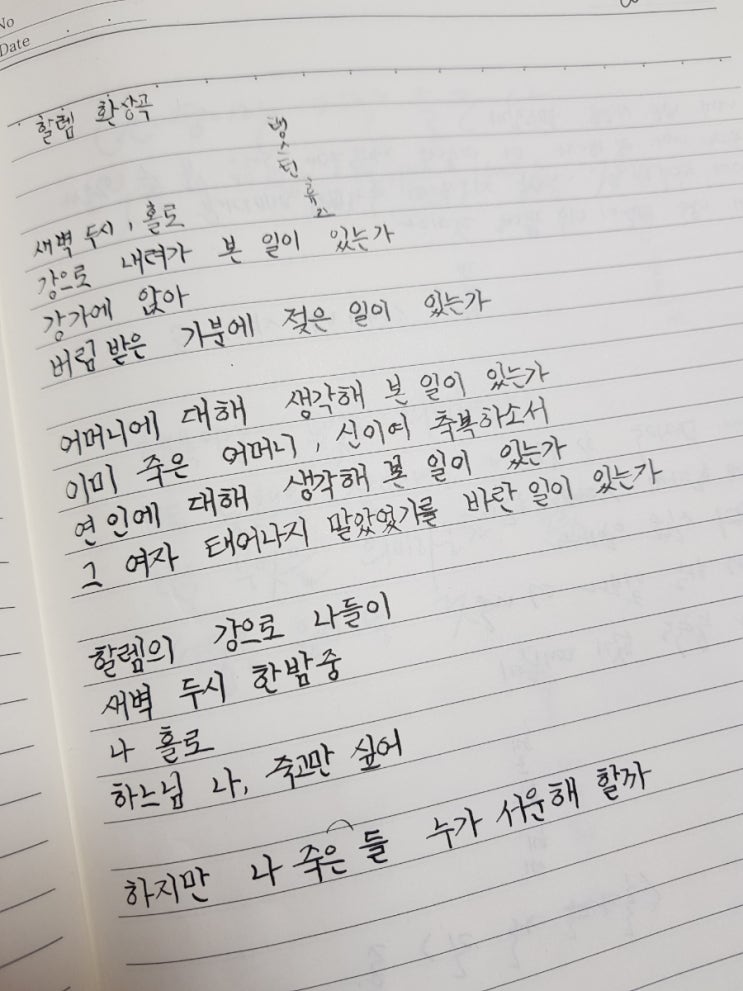 No
Date
할렘 환상곡
랭스턴 휴즈
새벽 두시, 홀로
강으로 내려가 본 일이 있는가
강가에 앉아
버림받은 기분에 젖은 일이 있는가
어머니에 대해 생각해 본 일이 있는가
이미 죽은 어머니, 신이여 축복하소서
연인에 대해 생각해 본 일이 있는가
그 여자 태어나지 말았었기를 바란 일이 있는가
할렘의 강으로 나들이
새벽 두시 한밤중
나 홀로
하느님 나, 죽고만 싶어
하지만 나 죽은들 누가 서운해 할까